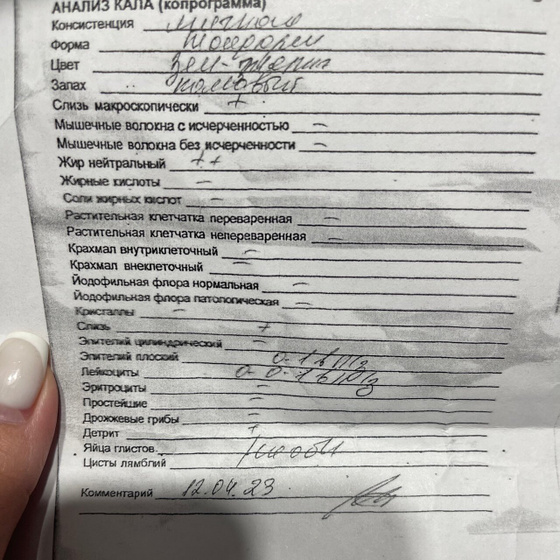 АНАЛИЗ КАЛА (копрограмма)
Консистенция
Форма
Цвет зел-
Запах каловый
Слизь макроскопически +
Мышечные волокна с исчерченностью –
Мышечные волокна без исчерченности –
Жир нейтральный ++
Жирные кислоты –
Соли жирных кислот –
Растительная клетчатка переваренная –
Растительная клетчатка непереваренная –
Крахмал внутриклеточный –
Крахмал внеклеточный –
Йодофильная флора нормальная –
Йодофильная флора патологическая –
Кристаллы –
Слизь +
Эпителий цилиндрический –
Эпителий плоский 0-1 в п/з
Лейкоциты 0-0-1 в п/з
Эритроциты –
Простейшие –
Дрожжевые грибы –
Детрит +
Яйца глистов
Цисты лямблий
Комментарий 12.04.23